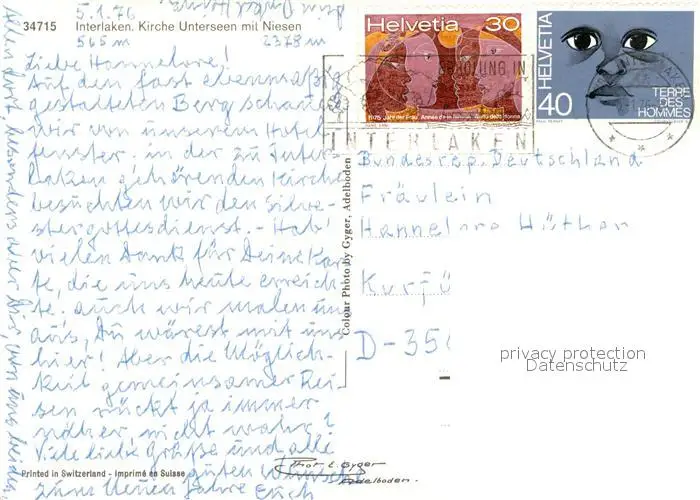 5.1.76
34715 Interlaken. Kirche Unterseen mit Niesen
565 m 2378 m
Liebe Hannelore!
Auf den fast ebenmäßig
gestalteten Berg schauen
wir von unserem Hotel
fenster, in der zu Inter-
laken gehörenden Kirche
besuchten wir den Silve-
stergottesdienst. - Hab'
vielen Dank für Deine Kar
te, die uns heute erreich-
te. Auch wir malen uns
aus, Du wärest mit uns
hier! Aber die Möglich-
keit gemeinsamer Rei-
sen rückt ja immer
näher, nicht wahr?
Viele liebe Grüße und alle
guten Wünsche
zum Neuen Jahre Euch
Printed in Switzerland - Imprimé en Suisse
Colour Photo by Gyger, Adelboden
Helvetia 30
1975 Jahr der Frau Année de la femme Anno della donna
HELVETIA
40
TERRE
DES
HOMMES
ERHOLUNG IN
INTERLAKEN
Bundesrep. Deutschland
Fräulein
Hannelore
Kurfü
D-35
privacy protection
Datenschutz
Phot. E. Gyger
Adelboden.